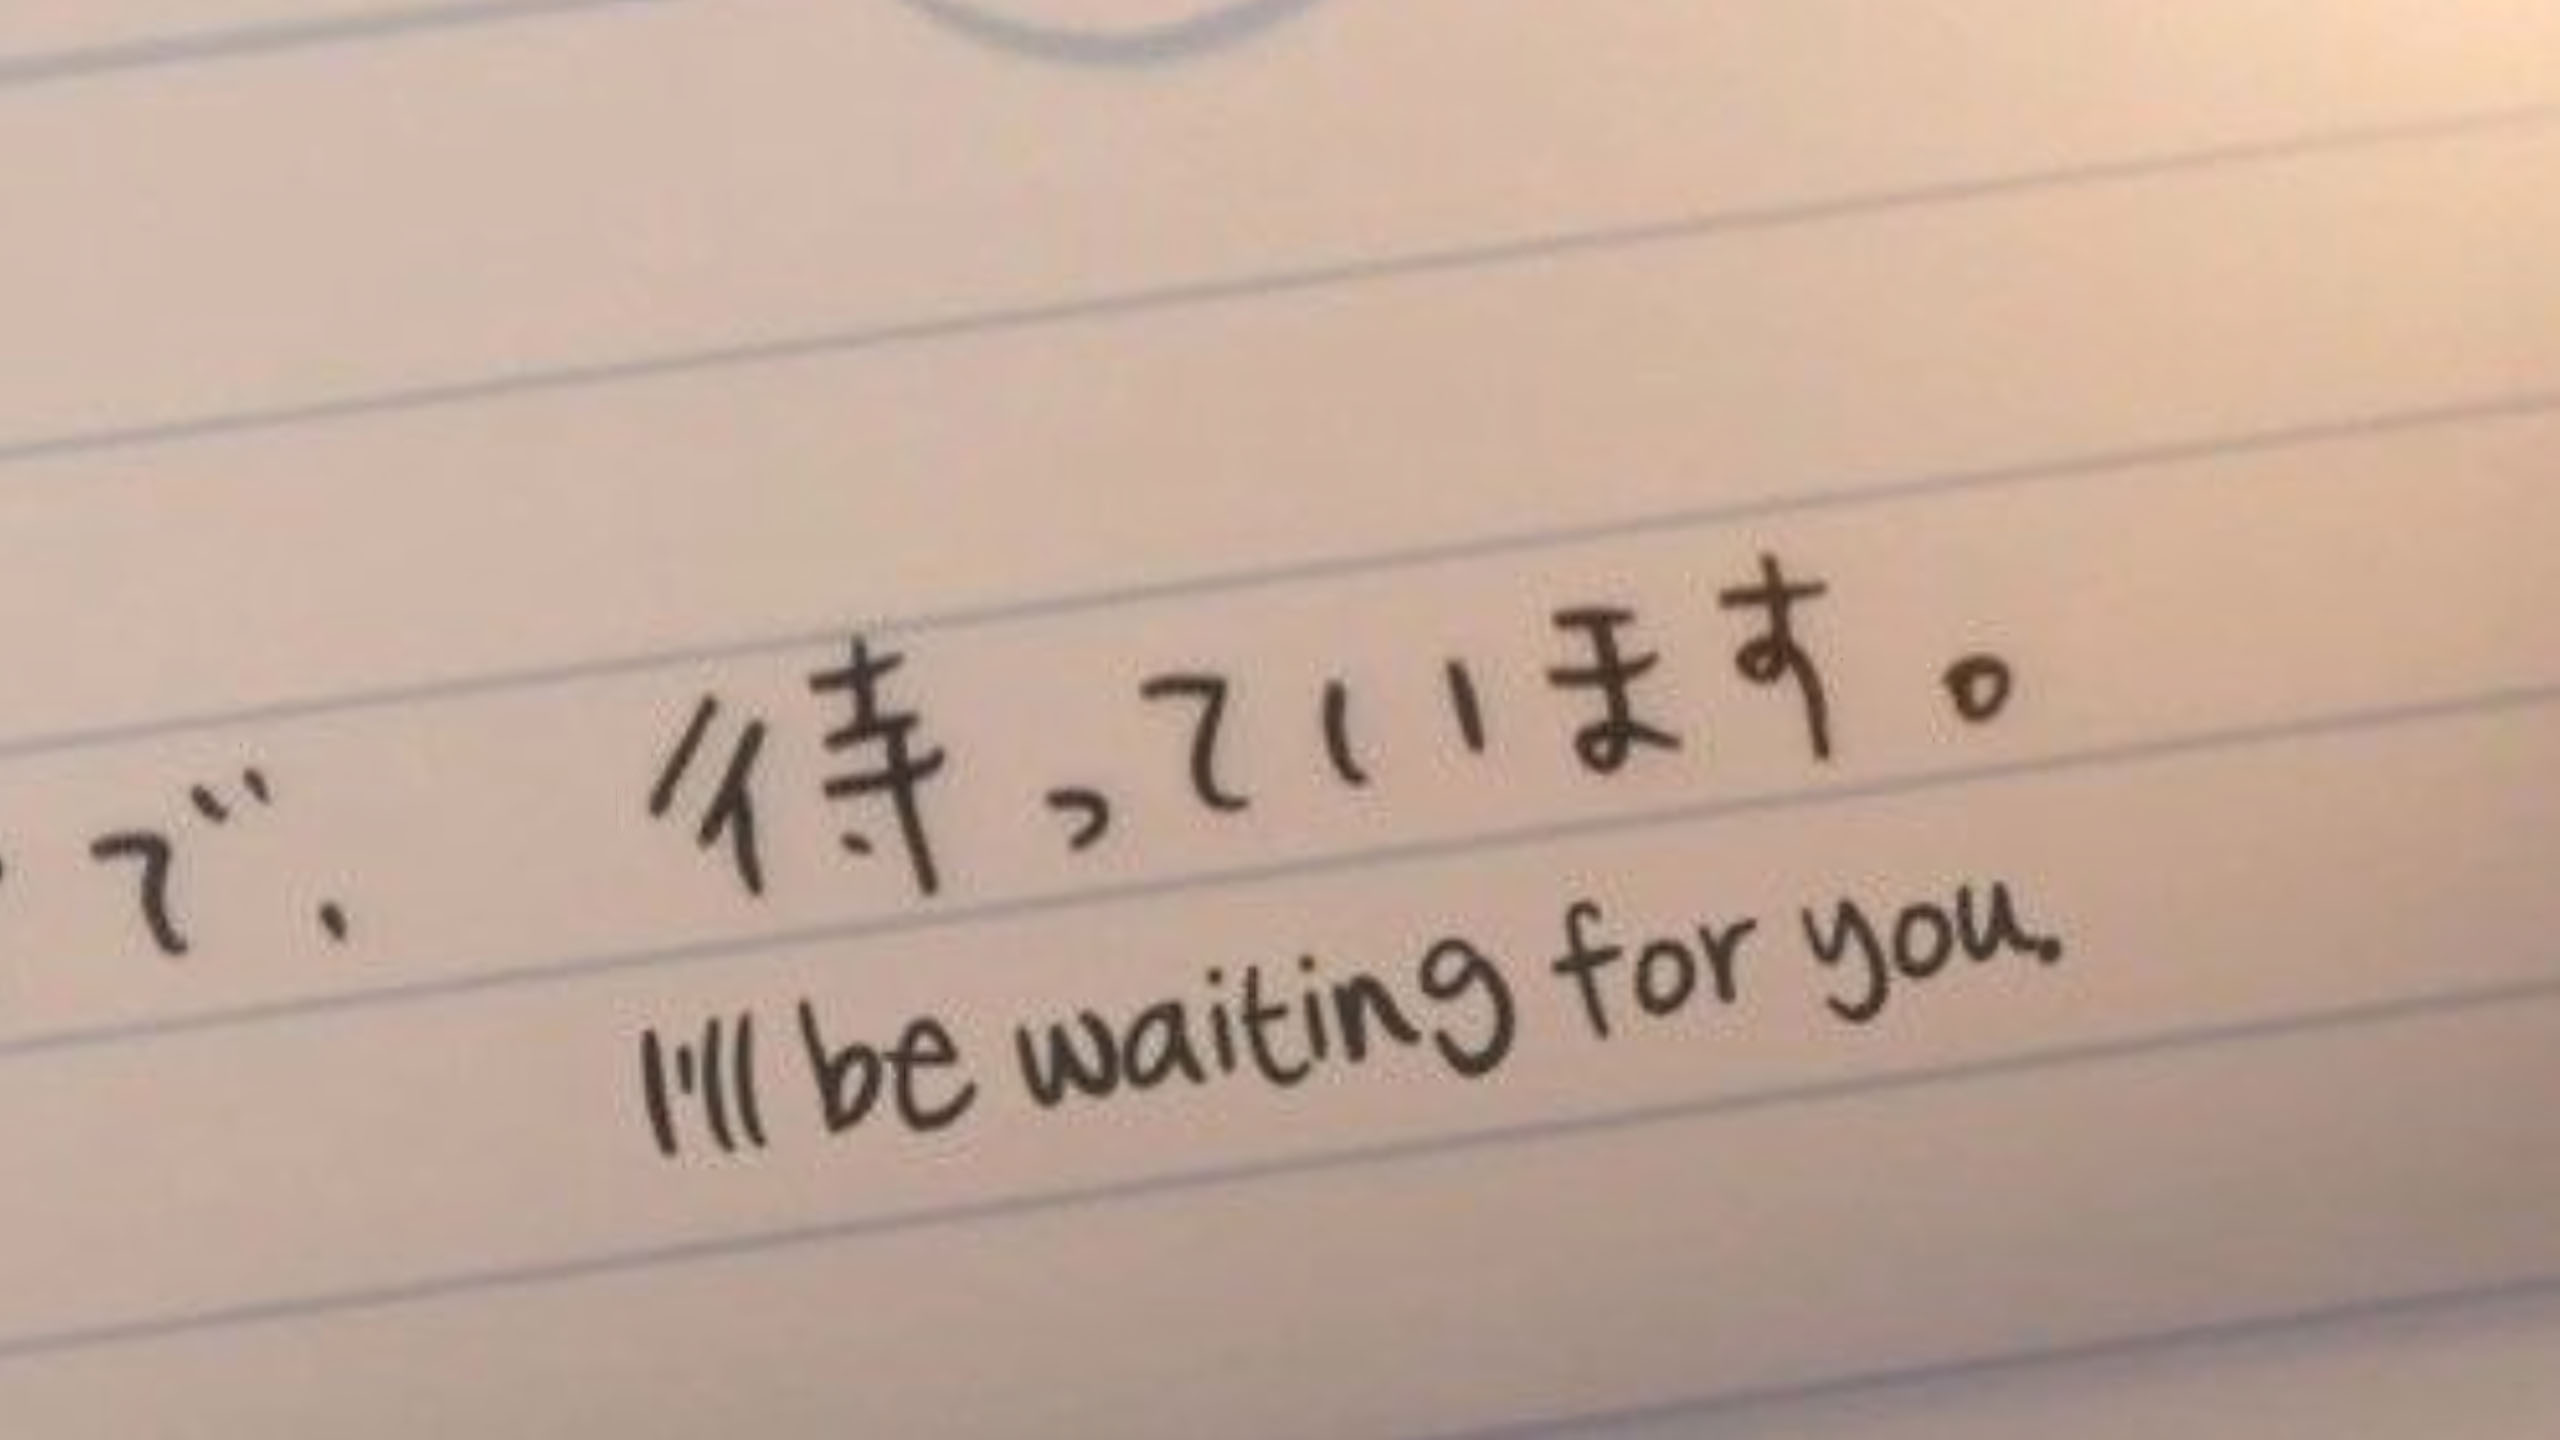 で、 待っています。
I'll be waiting for you.